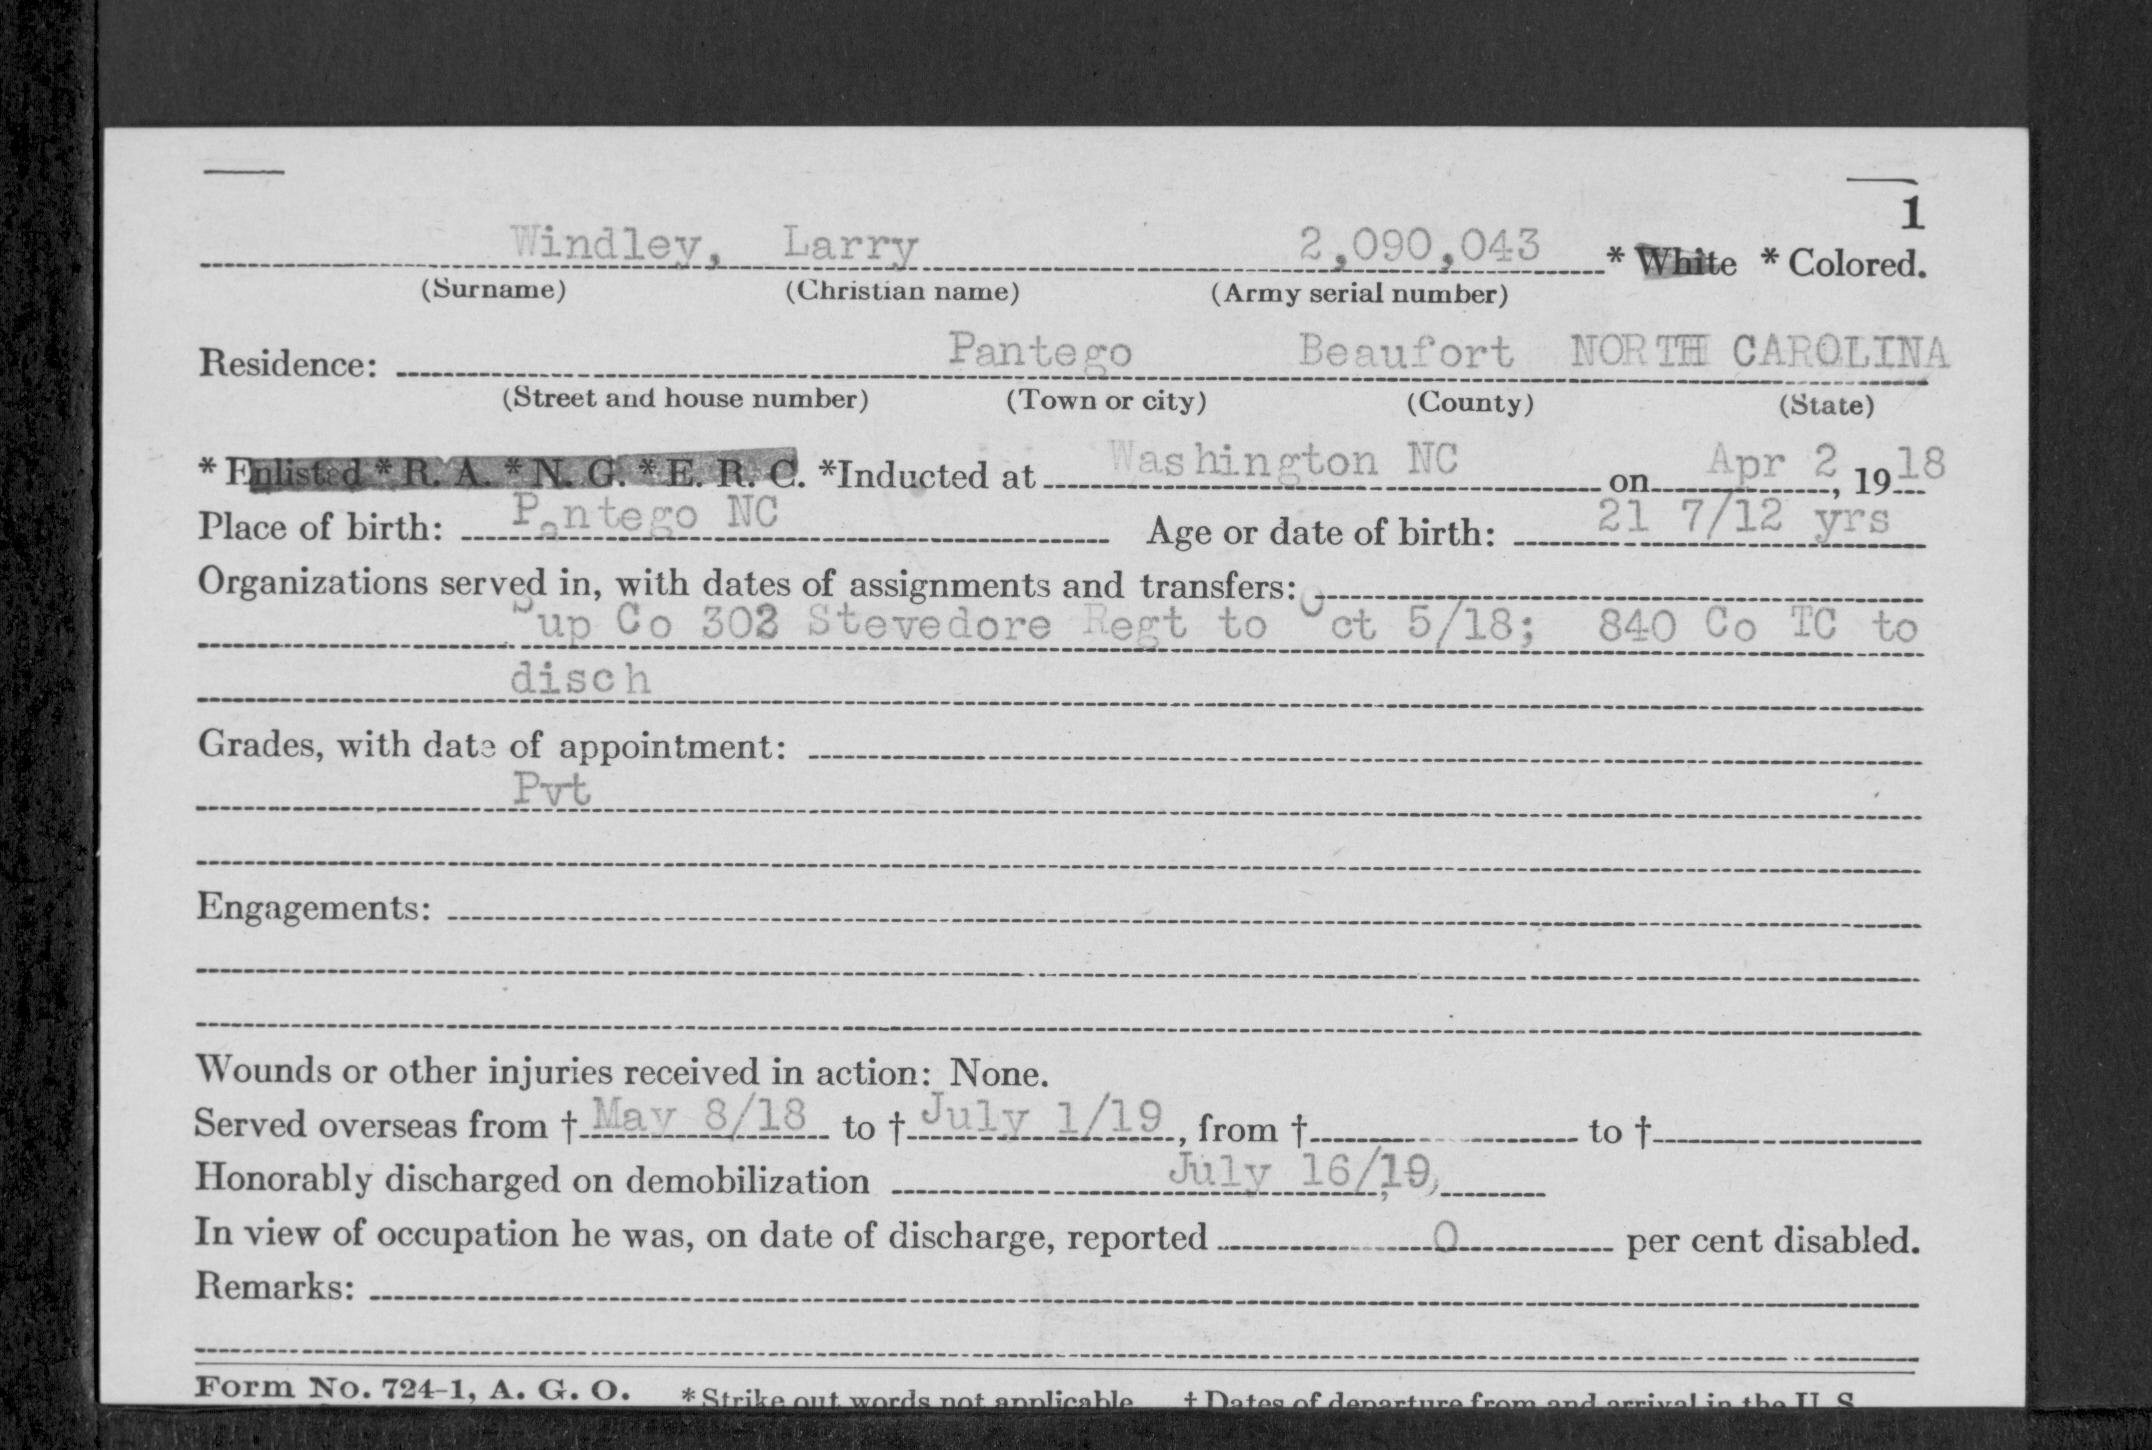 1
Windley, Larry 2,090,043 * White * Colored.
(Surname) (Christian name) (Army serial number)
Residence: Pantego Beaufort NORTH CAROLINA
(Street and house number) (Town or city) (County) (State)
* Enlisted * R. A. * N. G. * E. R. C. *Inducted at Washington NC on Apr 2, 1918
Place of birth: Pantego NC Age or date of birth: 21 7/12 yrs
Organizations served in, with dates of assignments and transfers:
Sup Co 302 Stevedore Regt to Oct 5/18; 840 Co TC to
disch
Grades, with date of appointment:
Pvt
Engagements:
Wounds or other injuries received in action: None.
Served overseas from † May 8/18 to † July 1/19, from † to †
Honorably discharged on demobilization July 16/19,
In view of occupation he was, on date of discharge, reported 0 per cent disabled.
Remarks:
Form No. 724-1, A. G. O. * Strike out words not applicable † Dates of departure from and arrival in the U S